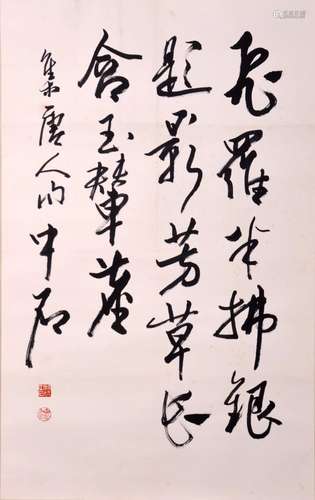 飛羅半拂銀
題影芳草長
含玉輦塵
集唐人句 中石